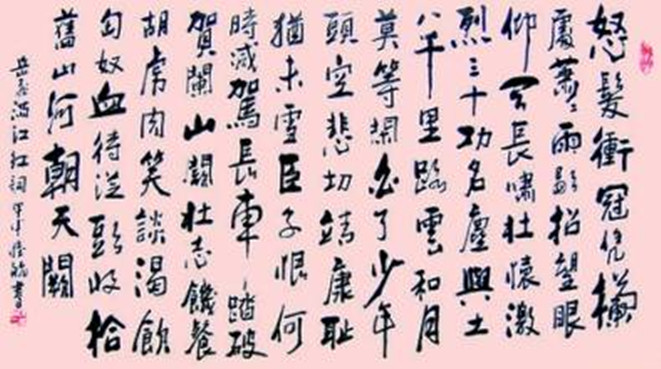 怒髮衝冠凭欄
處蕭〻雨歇抬望眼
仰天長嘯壯懷激
烈三十功名塵與土
八千里路雲和月
莫等閑白了少年
頭空悲切靖康耻
猶未雪臣子恨何
時滅駕長車踏破
賀闌山闕壯志饑餐
胡虜肉笑談渴飲
匈奴血待從頭收拾
舊山河朝天闕
岳飛滿江紅詞甲申書